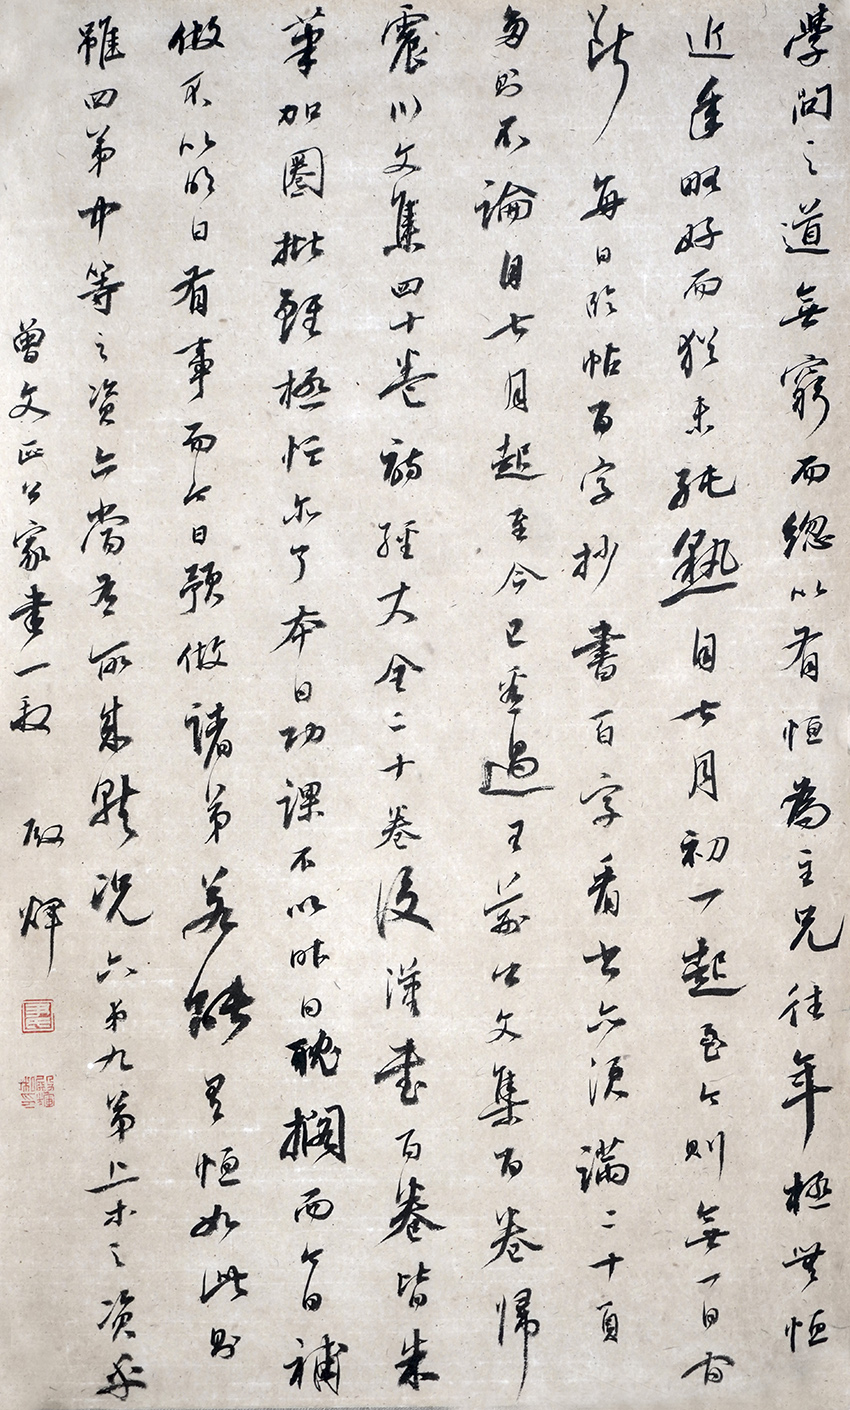 學問之道無窮而總以有恒為主兄往年極無恒
近年略好而猶未純熟自七月初一起至今則無一日間
斷每日臨帖百字抄書百字看書亦須滿二十頁
多則不論自七月起至今已看過王荊公文集百卷歸
震川文集四十卷詩經大全二十卷後漢書百卷皆朱
筆加圈批雖極忙亦了本日功課不以昨日耽擱而今日補
做不以明日有事而今日預做諸弟若能有恒如此則
雖四弟中等之資亦當有所成就況六弟九弟上等之資乎
曾文正公家書一段 殷煇